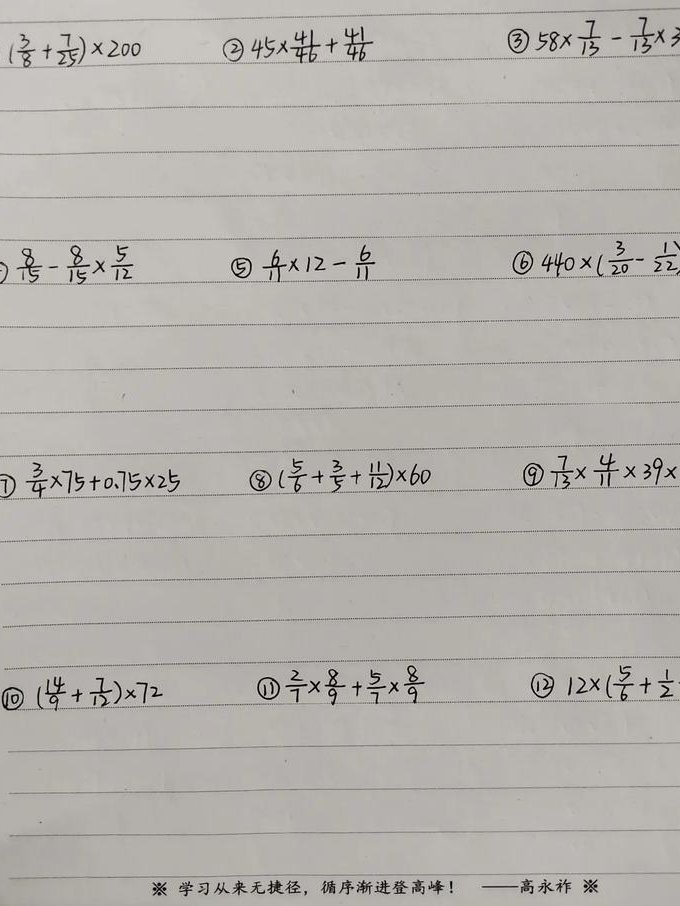 (3/8 + 7/25)×200 ② 45×41/46 + 41/46 ③ 58×7/13 - 7/13×3
8/15 - 8/15×5/12 ⑤ 6/11×12 - 6/11 ⑥ 440×(3/20 - 1/22)
⑦ 3/4×75+0.75×25 ⑧ (5/6 + 3/5 + 11/12)×60 ⑨ 7/13×4/11×39×
⑩ (14/9 + 7/12)×72 ⑪ 2/7×8/9 + 5/7×8/9 ⑫ 12×(5/6 + 1/2
※ 学习从来无捷径，循序渐进登高峰！ ——高永祚 ※